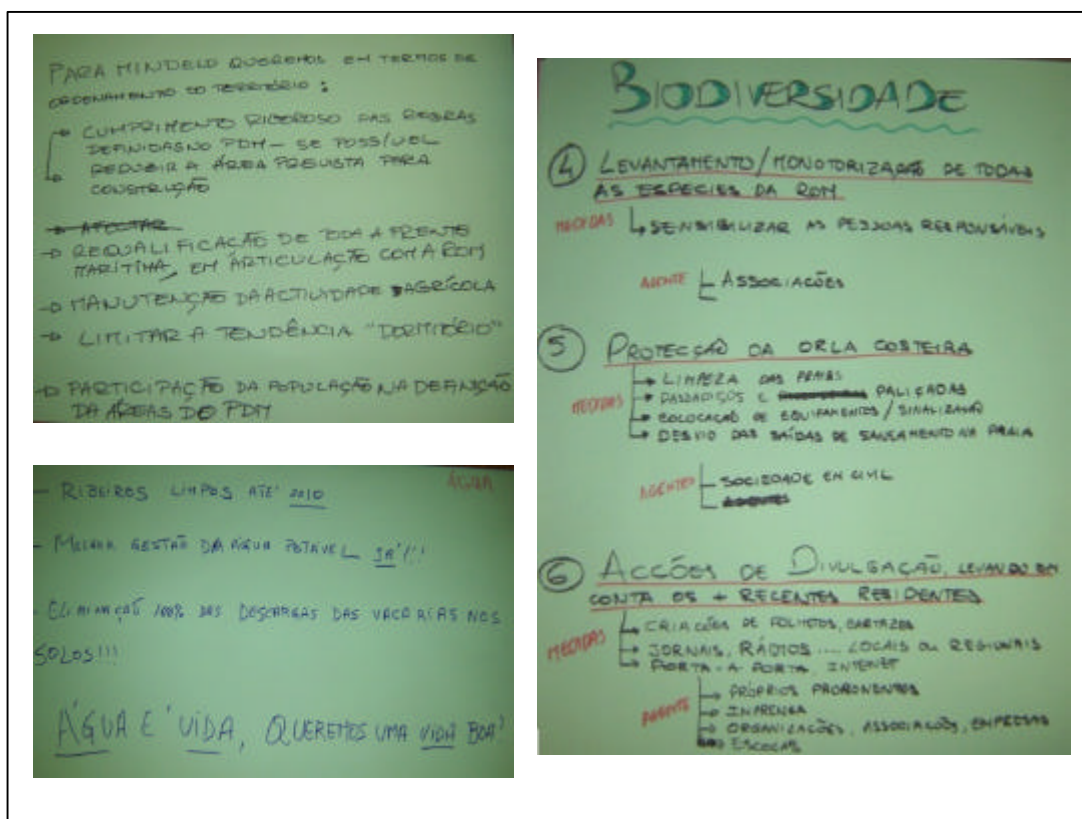 PARA MINDELO QUEREMOS EM TERMOS DE
ORDENAMENTO DO TERRITÓRIO :
→ CUMPRIMENTO RIGOROSO DAS REGRAS
DEFINIDAS NO PDM - SE POSSÍVEL
→ REDUZIR A ÁREA PREVISTA PARA
CONSTRUÇÃO
→ REQUALIFICAÇÃO DE TODA A FRENTE
MARÍTIMA, EM ÁRTICULAÇÃO COM A ROM
→ MANUTENÇÃO DA ACTIVIDADE AGRÍCOLA
→ LIMITAR A TENDÊNCIA "DORMITÓRIO"
→ PARTICIPAÇÃO DA POPULAÇÃO NA DEFINIÇÃO
DA ÁREAS DO PDM
ÁGUA
- RIBEIROS LIMPOS ATÉ 2010
- MELHOR GESTÃO DA ÁGUA POTÁVEL JÁ!!!
- ELIMINAÇÃO 100% DAS DESCARGAS DAS VACARIAS NOS
SOLOS!!!
ÁGUA É VIDA, QUEREMOS UMA VIDA BOA!
BIODIVERSIDADE
④ LEVANTAMENTO/MONOTORIZAÇÃO DE TODAS
AS ESPÉCIES DA ROM
MEDIDAS ↳ SENSIBILIZAR AS PESSOAS RESPONSÁVEIS
AGENTE ASSOCIAÇÕES
⑤ PROTECÇÃO DA ORLA COSTEIRA
→ LIMPEZA DAS PRAIAS
MEDIDAS → PASSADIÇOS E PALIÇADAS
→ COLOCAÇÃO DE EQUIPAMENTOS / SINALIZAÇÃO
→ DESVIO DAS SAÍDAS DE SANEAMENTO NA PRAIA
AGENTES SOCIEDADE EM CIVIL
⑥ ACCÕES DE DIVULGAÇÃO, LEVANDO EM
CONTA OS + RECENTES RESIDENTES
→ CRIAÇÕES DE FOLHETOS, CARTAZES
MEDIDAS → JORNAIS, RÁDIOS .... LOCAIS OU REGIONAIS
→ PORTA-A-PORTA, INTENET
→ PRÓPRIOS PROPONENTES
AGENTE → INPRENSA
→ ORGANIZAÇÕES, ASSOCIAÇÕES, EMPRESAS
→ ESCOLAS